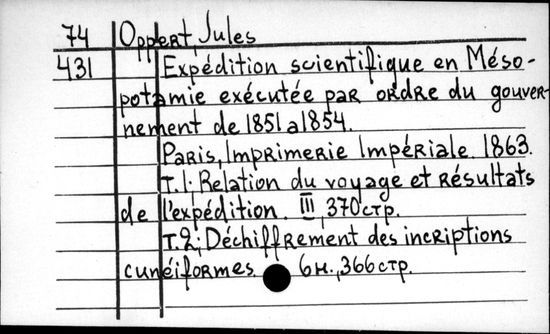 74 Oppert, Jules
431 Expédition scientifique en Méso-
potamie exécutée par ordre du gouver-
nement de 1851 a 1854.
Paris, Imprimerie Impériale. 1863.
T.1; Relation du voyage et résultats
de l'expédition. III, 370 стр.
T.2; Déchiffrement des incriptions
cunéiformes. 6н., 366 стр.